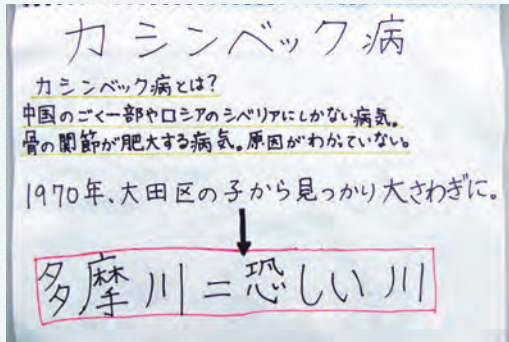 カシンベック病
カシンベック病とは?
中国のごく一部やロシアのシベリアにしかない病気。
骨の関節が肥大する病気。原因がわかっていない。
1970年、大田区の子から見っかり大さわぎに。
多摩川=恐しい川